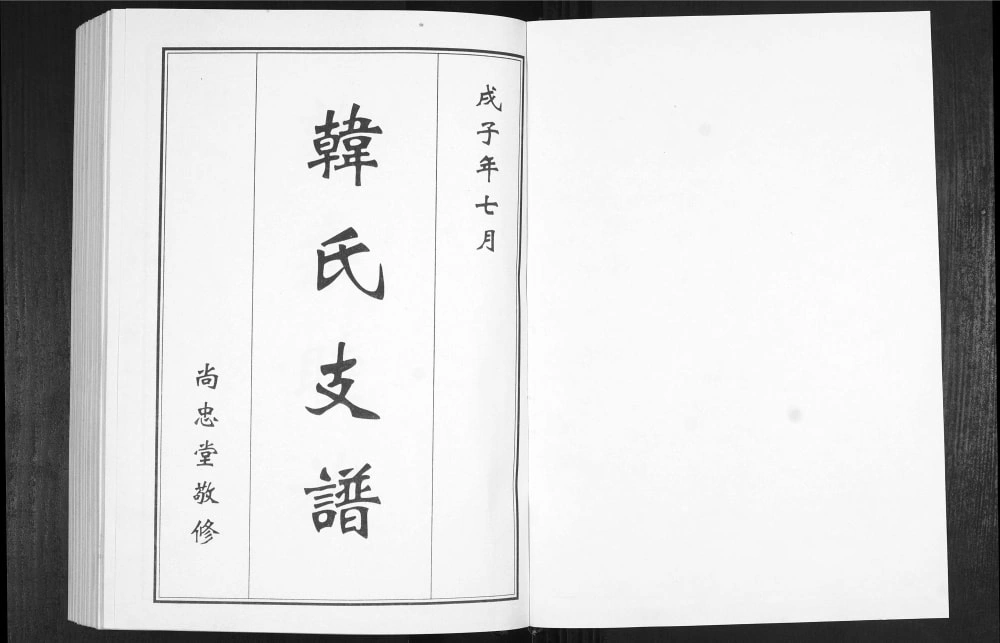 戌子年七月
韓氏支譜
尚忠堂敬修